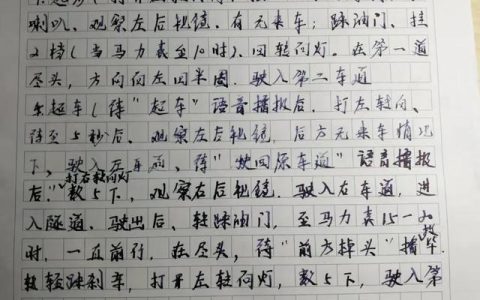 喇叭、观察左后视镜、有无来车;踩油门、挂
2档(当马力表至10时)、回转向灯。在第一道
尽头,方向向左回半圈.驶入第二车道
5.超车(待“超车”语音播报后.打左转向、
待至5秒后、观察左后视镜、后方无来车情况
下、驶入左车道、待“驶回原车道”语音播报
打右转向灯
后.数5下,观察右后视镜.驶入右车道,进
入隧道.驶出后、轻踩油门,至马力表15—20
时,一直前行.在尽头,待“前方掉头”播毕
轻踩刹车,打开左转向灯,数5下,驶入第